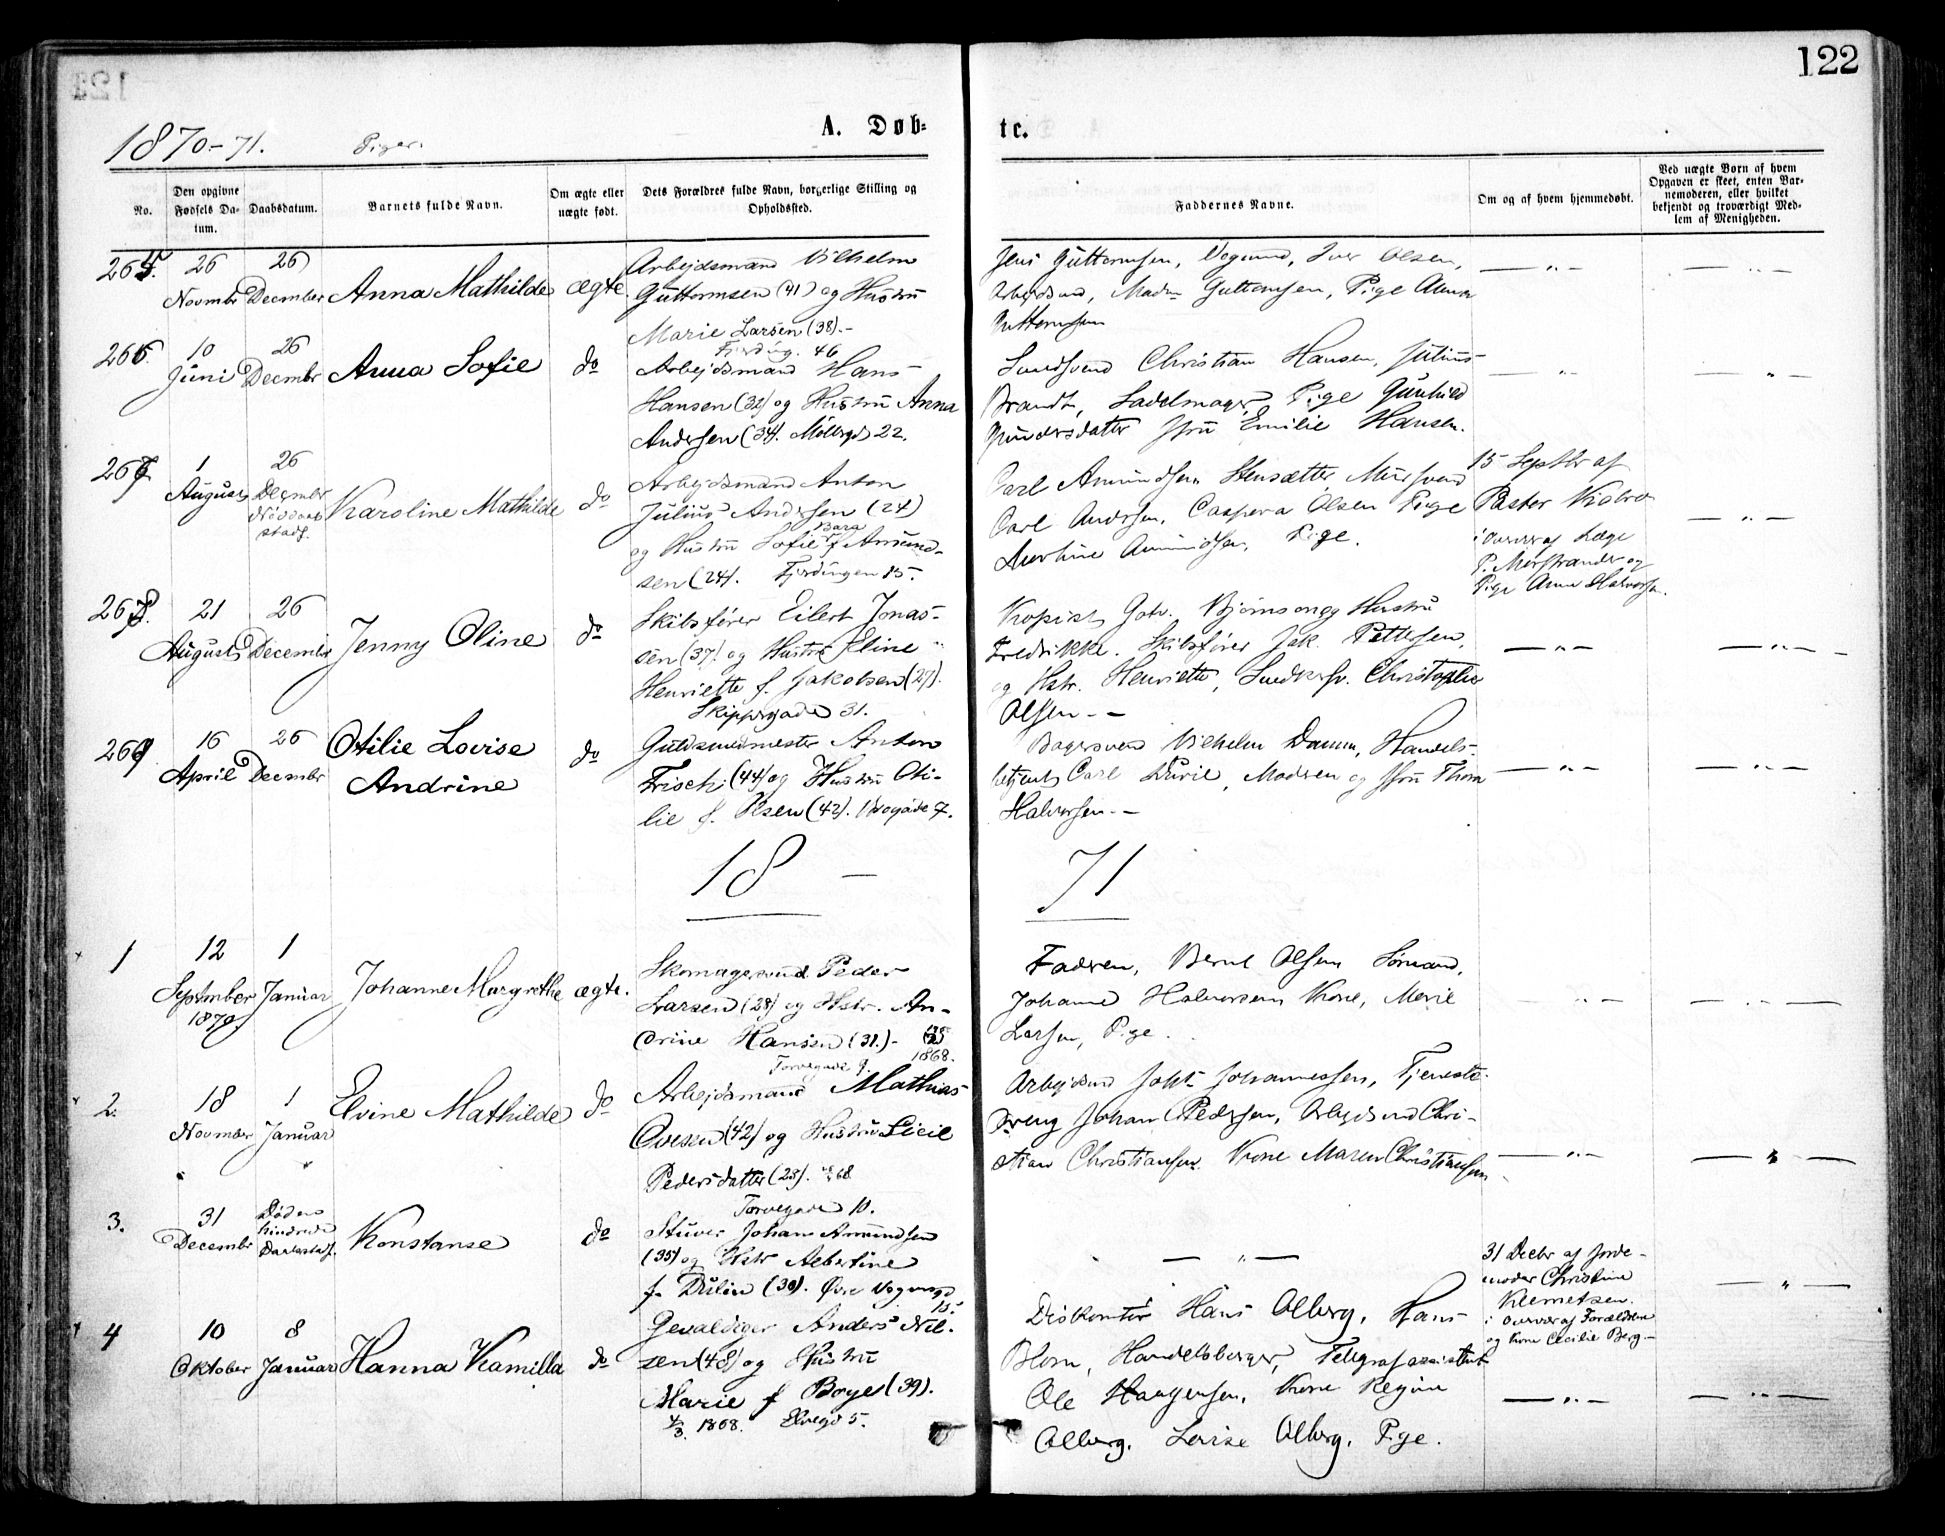 122
1870-71. Piger.
A. Døb-
te.
No.
Den opgivne Fødsels Da-
tum.
Daabsdatum.
Barnets fulde Navn.
Om ægte eller
uægte født.
Dets Forældres fulde Navn, borgerlige Stilling og
Opholdssted.
Faddernes Navne.
Om og af hvem hjemmedøbt.
Ved uægte Børn af hvem
Opgaven er skeet, enten Bar-
nemoderen, eller hvilket
bekjendt og troværdigt Med-
lem af Menigheden.
265. 26 Novmbr 26 December Anna Mathilde ægte.
Arbejdsmand Vilhelm
Guttormsen (41) og Hustru
Marie Larsen (38).-
Fjerding. 46
Jens Guttormsen, Vognmd, Iver Olsen,
Arbejdsmd, Madm Guttormsen, Pige Anna
Guttormsen
266. 10 Juni 26 Decembr Anna Sofie do
Arbejdsmand Hans
Hansen (32) og Hustru Anna
Andersen (34). Møllergd 22.
Smedsvend Christian Hansen, Julius
Brandt, Sadelmager, Pige Gunhild
Gundersdatter Fru Emilie Hansen.
267. 1 August 26 Decmbr
Nissens
stads.
Karoline Mathilde do
Arbejdsmand Anton
Julius Andersen (24)
og Hustru Sofie Bara f. Amund-
sen (24). Fjerdingen 15.
Carl Amundsen Stensætter, Mursvend
Carl Andrsen, Caspera Olsen Pige
Martine Amundsen, Pige.
15 Septbr af
Pastor Kolvo
i Overvær af Læge
P. Morstrander og
Pige Anna Halvorsn.
268. 21 August 26 December Jenny Oline do
Skibsfører Eilert Jonas-
sen (37) og Hustru Eline
Henriette f. Jakobsen (27).
Skippergade 31.
Kopist Gotv. Bjørnson og Hustru
Fredrikke. Skibsfører Jak. Pettersen,
og Hstr. Henriette, Snedkersv. Christopher
Olsen.-
269. 16 April 26 Decembr Otilie Lovise
Andrine do
Guldsmedmester Anton
Frisch (44) og Hustru Oti-
lie f. Olsen (42). Vognde 7.
Bagersvend Vilhelm Damm, Handels-
betjent Carl Durie, Madsen og Fru Thora
Halvorsen.-
18 - 71
1 12 September
1870 1 Januar Johanne Margrethe ægte.
Skomagersvend Peder
Larsen (28) og Hstr. An-
drine Hansen (31).-
1868.
Torvegade 9.
Faderen, Bernt Olsen Sømand,
Johanne Halvorsen Kone, Marie
Larsen, Pige.
2. 18 Novmber 1 Januar Elvine Mathilde do
Arbejdsmand Mathias
Ovesen (42) og Hustru Sicie
Pedersdatter (23). 68
Torvegaden 10.
Arbejdsmd Joh: Johannessen, Tjeneste-
dreng Johan Pedersen, Arbejdsmd Chri-
stian Christiansen. Kone Maren Christiansen.
3. 31 Decembr Døden
hindrede
Daabstadf.
Konstanse do
Stuver Johan Amundsen
(35) og Hstr Albertine
f. Dulin (30). Øvre Vognmgd
15.
31 Decbr af Jorde-
moder Christine
Klemetsen.
i Overvær af Forældrene
og Kone Cecilie Berg-
4 10 Oktober 8 Januar Hanna Kamilla do
Gevaldiger Anders Nil-
sen (48) og Hustru
Marie f Boye (39).
4/3. 1868. Elvegd 5.
Diskontør Hans Olberg, Hans
Blom, Handelsborger, Telegrafassistent
Ole Haagensen, Kone Regine
Olberg, Lovise Olberg, Pige.